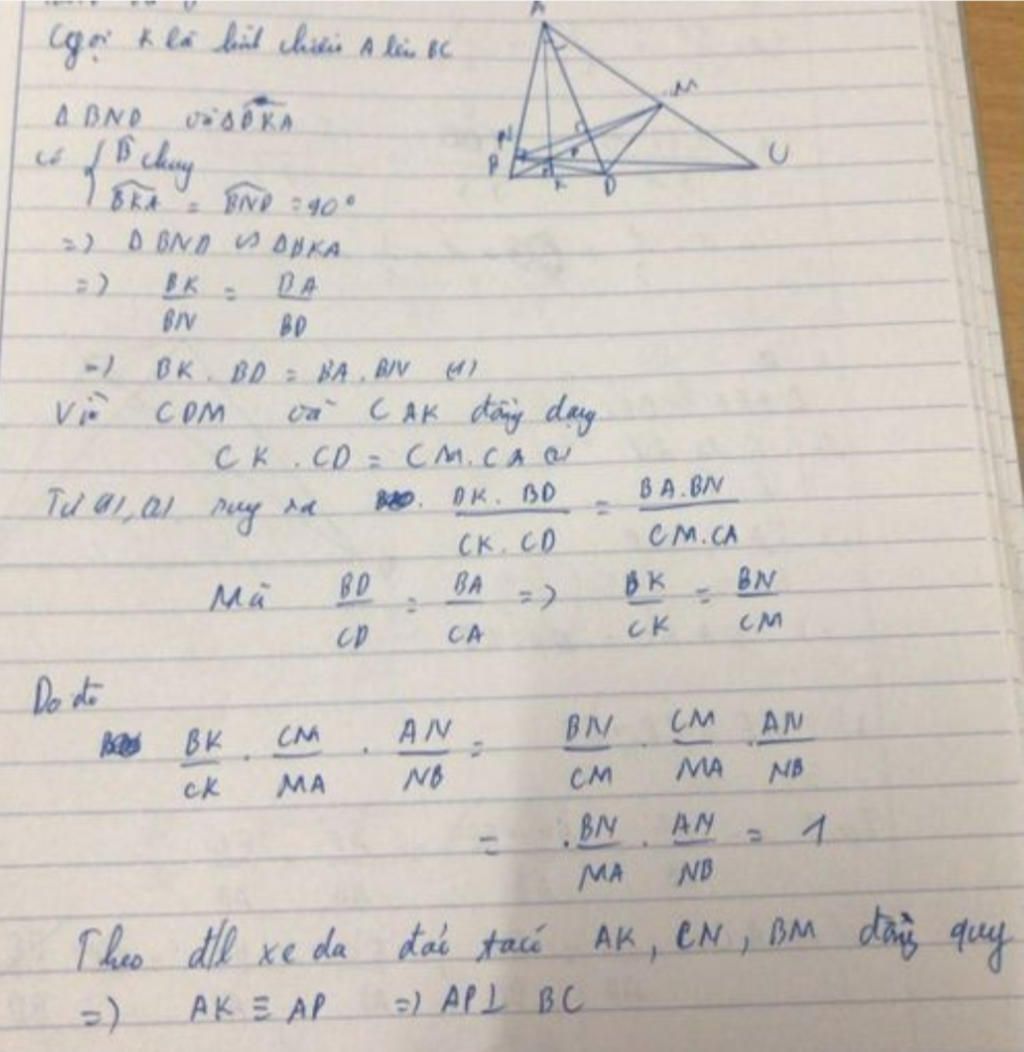 Gọi K là hình chiếu A lên BC
A
M
N
B
P
K
D
C
Δ BND và Δ BKA
có { B̂ chung
BKA = BND = 90°
=> Δ BND ∽ Δ BKA
=> BK/BN = BA/BD
=> BK . BD = BA . BN (1)
Vì CDM và CAK đồng dạng
CK . CD = CM . CA (2)
Từ (1), (2) suy ra BK . BD / CK . CD = BA . BN / CM . CA
Mà BD/CD = BA/CA => BK/CK = BN/CM
Do đó
BK/CK . CM/MA . AN/NB = BN/CM . CM/MA . AN/NB
= . BN/MA . AN/NB = 1
Theo đ/l xe da đảo AK, CN, BM đồng quy
=> AK ≡ AP => AP ⊥ BC